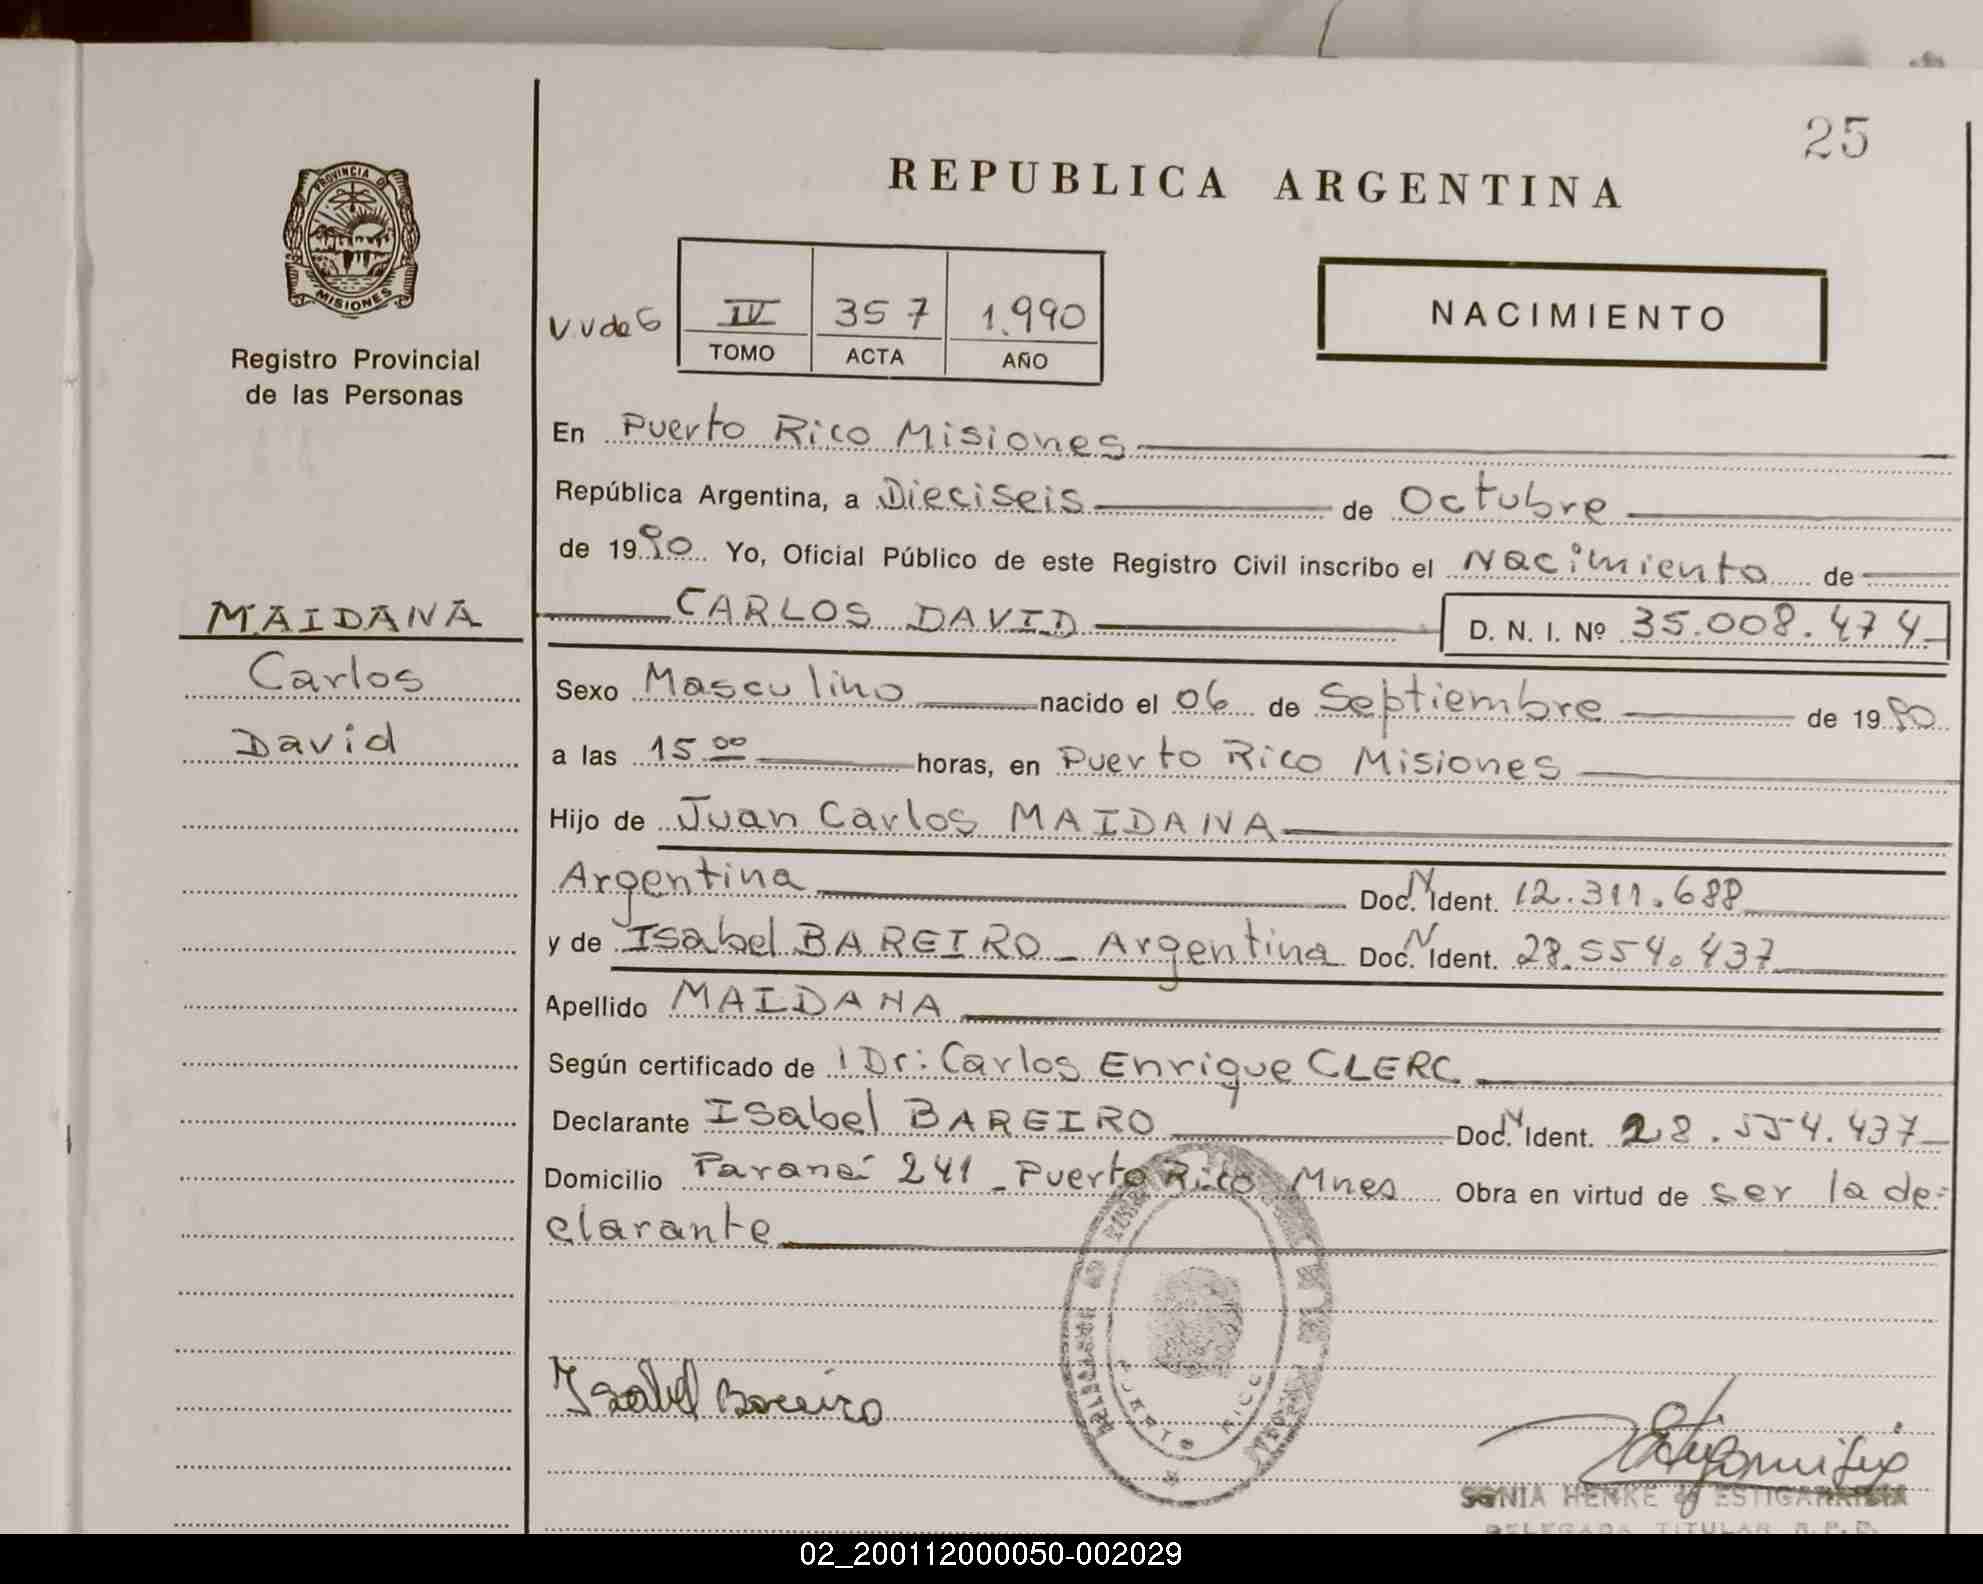 25
REPUBLICA ARGENTINA
PROVINCIA DE
MISIONES
Registro Provincial
de las Personas
IV 357 1.990
TOMO ACTA AÑO
NACIMIENTO
En Puerto Rico Misiones
República Argentina, a Dieciseis de Octubre
de 1990 Yo, Oficial Público de este Registro Civil inscribo el Nacimiento de
MAIDANA
CARLOS DAVID D. N. I. Nº 35.008.474
Carlos
Sexo Masculino nacido el 06 de Septiembre de 1990
David
a las 15.00 horas, en Puerto Rico Misiones
Hijo de Juan Carlos MAIDANA
Argentina Doc. N Ident. 12.311.688
y de Isabel BAREIRO - Argentina Doc. N Ident. 28.554.437
Apellido MAIDANA
Según certificado de l Dr: Carlos Enrique CLERC
Declarante Isabel BAREIRO Doc. N Ident. 28.554.437
Domicilio Paraná 241 - Puerto Rico Mnes Obra en virtud de ser la de=
clarante
PUERTO RICO
Isabel Bareiro
SONIA HENKE de ESTIGARRIBIA
DELEGADA TITULAR R.P.P.
02_200112000050-002029